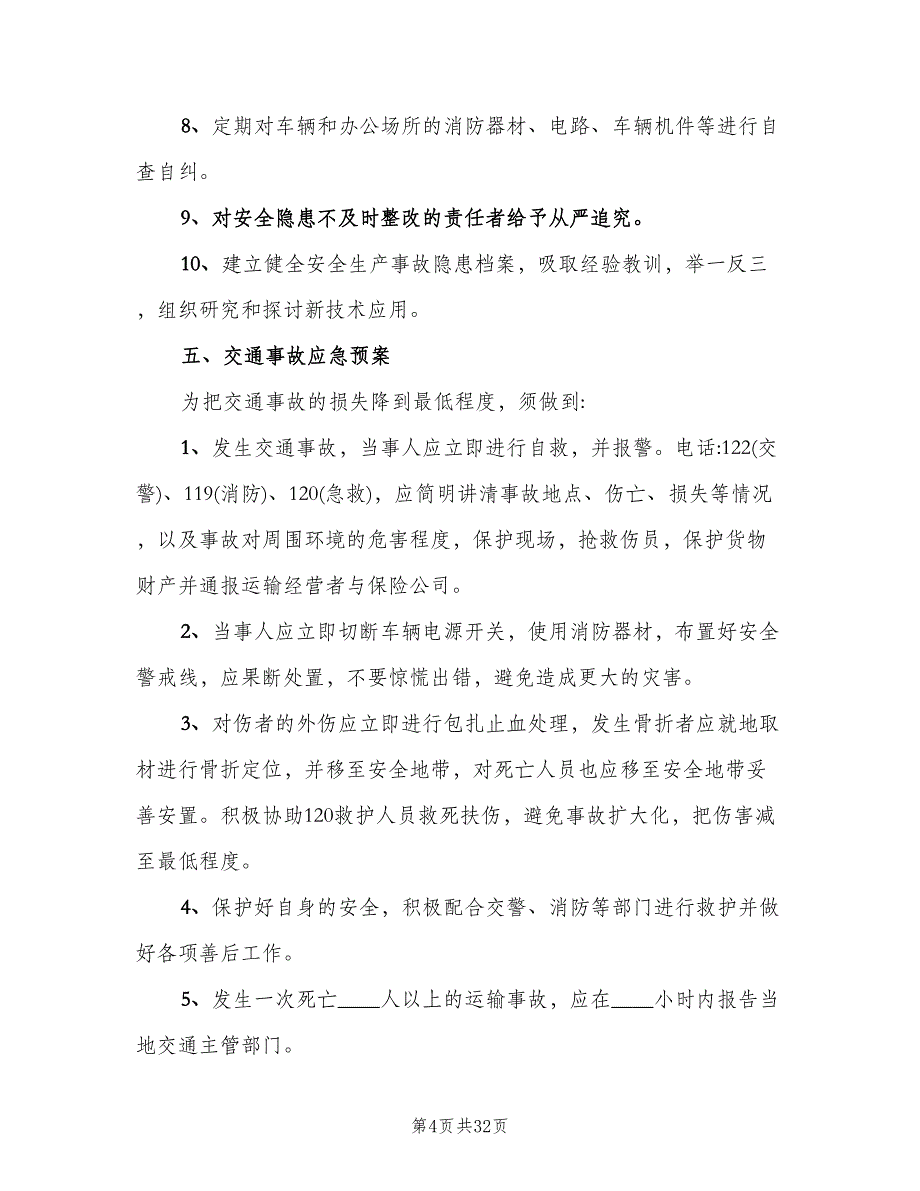 8、定期对车辆和办公场所的消防器材、电路、车辆机件等进行自
查自纠。
9、对安全隐患不及时整改的责任者给予从严追究。
10、建立健全安全生产事故隐患档案，吸取经验教训，举一反三
，组织研究和探讨新技术应用。
五、交通事故应急预案
为把交通事故的损失降到最低程度，须做到:
1、发生交通事故，当事人应立即进行自救，并报警。电话:122(交
警)、119(消防)、120(急救)，应简明讲清事故地点、伤亡、损失等情况
，以及事故对周围环境的危害程度，保护现场，抢救伤员，保护货物
财产并通报运输经营者与保险公司。
2、当事人应立即切断车辆电源开关，使用消防器材，布置好安全
警戒线，应果断处置，不要惊慌出错，避免造成更大的灾害。
3、对伤者的外伤应立即进行包扎止血处理，发生骨折者应就地取
材进行骨折定位，并移至安全地带，对死亡人员也应移至安全地带妥
善安置。积极协助120救护人员救死扶伤，避免事故扩大化，把伤害减
至最低程度。
4、保护好自身的安全，积极配合交警、消防等部门进行救护并做
好各项善后工作。
5、发生一次死亡____人以上的运输事故，应在____小时内报告当
地交通主管部门。
第4页共32页